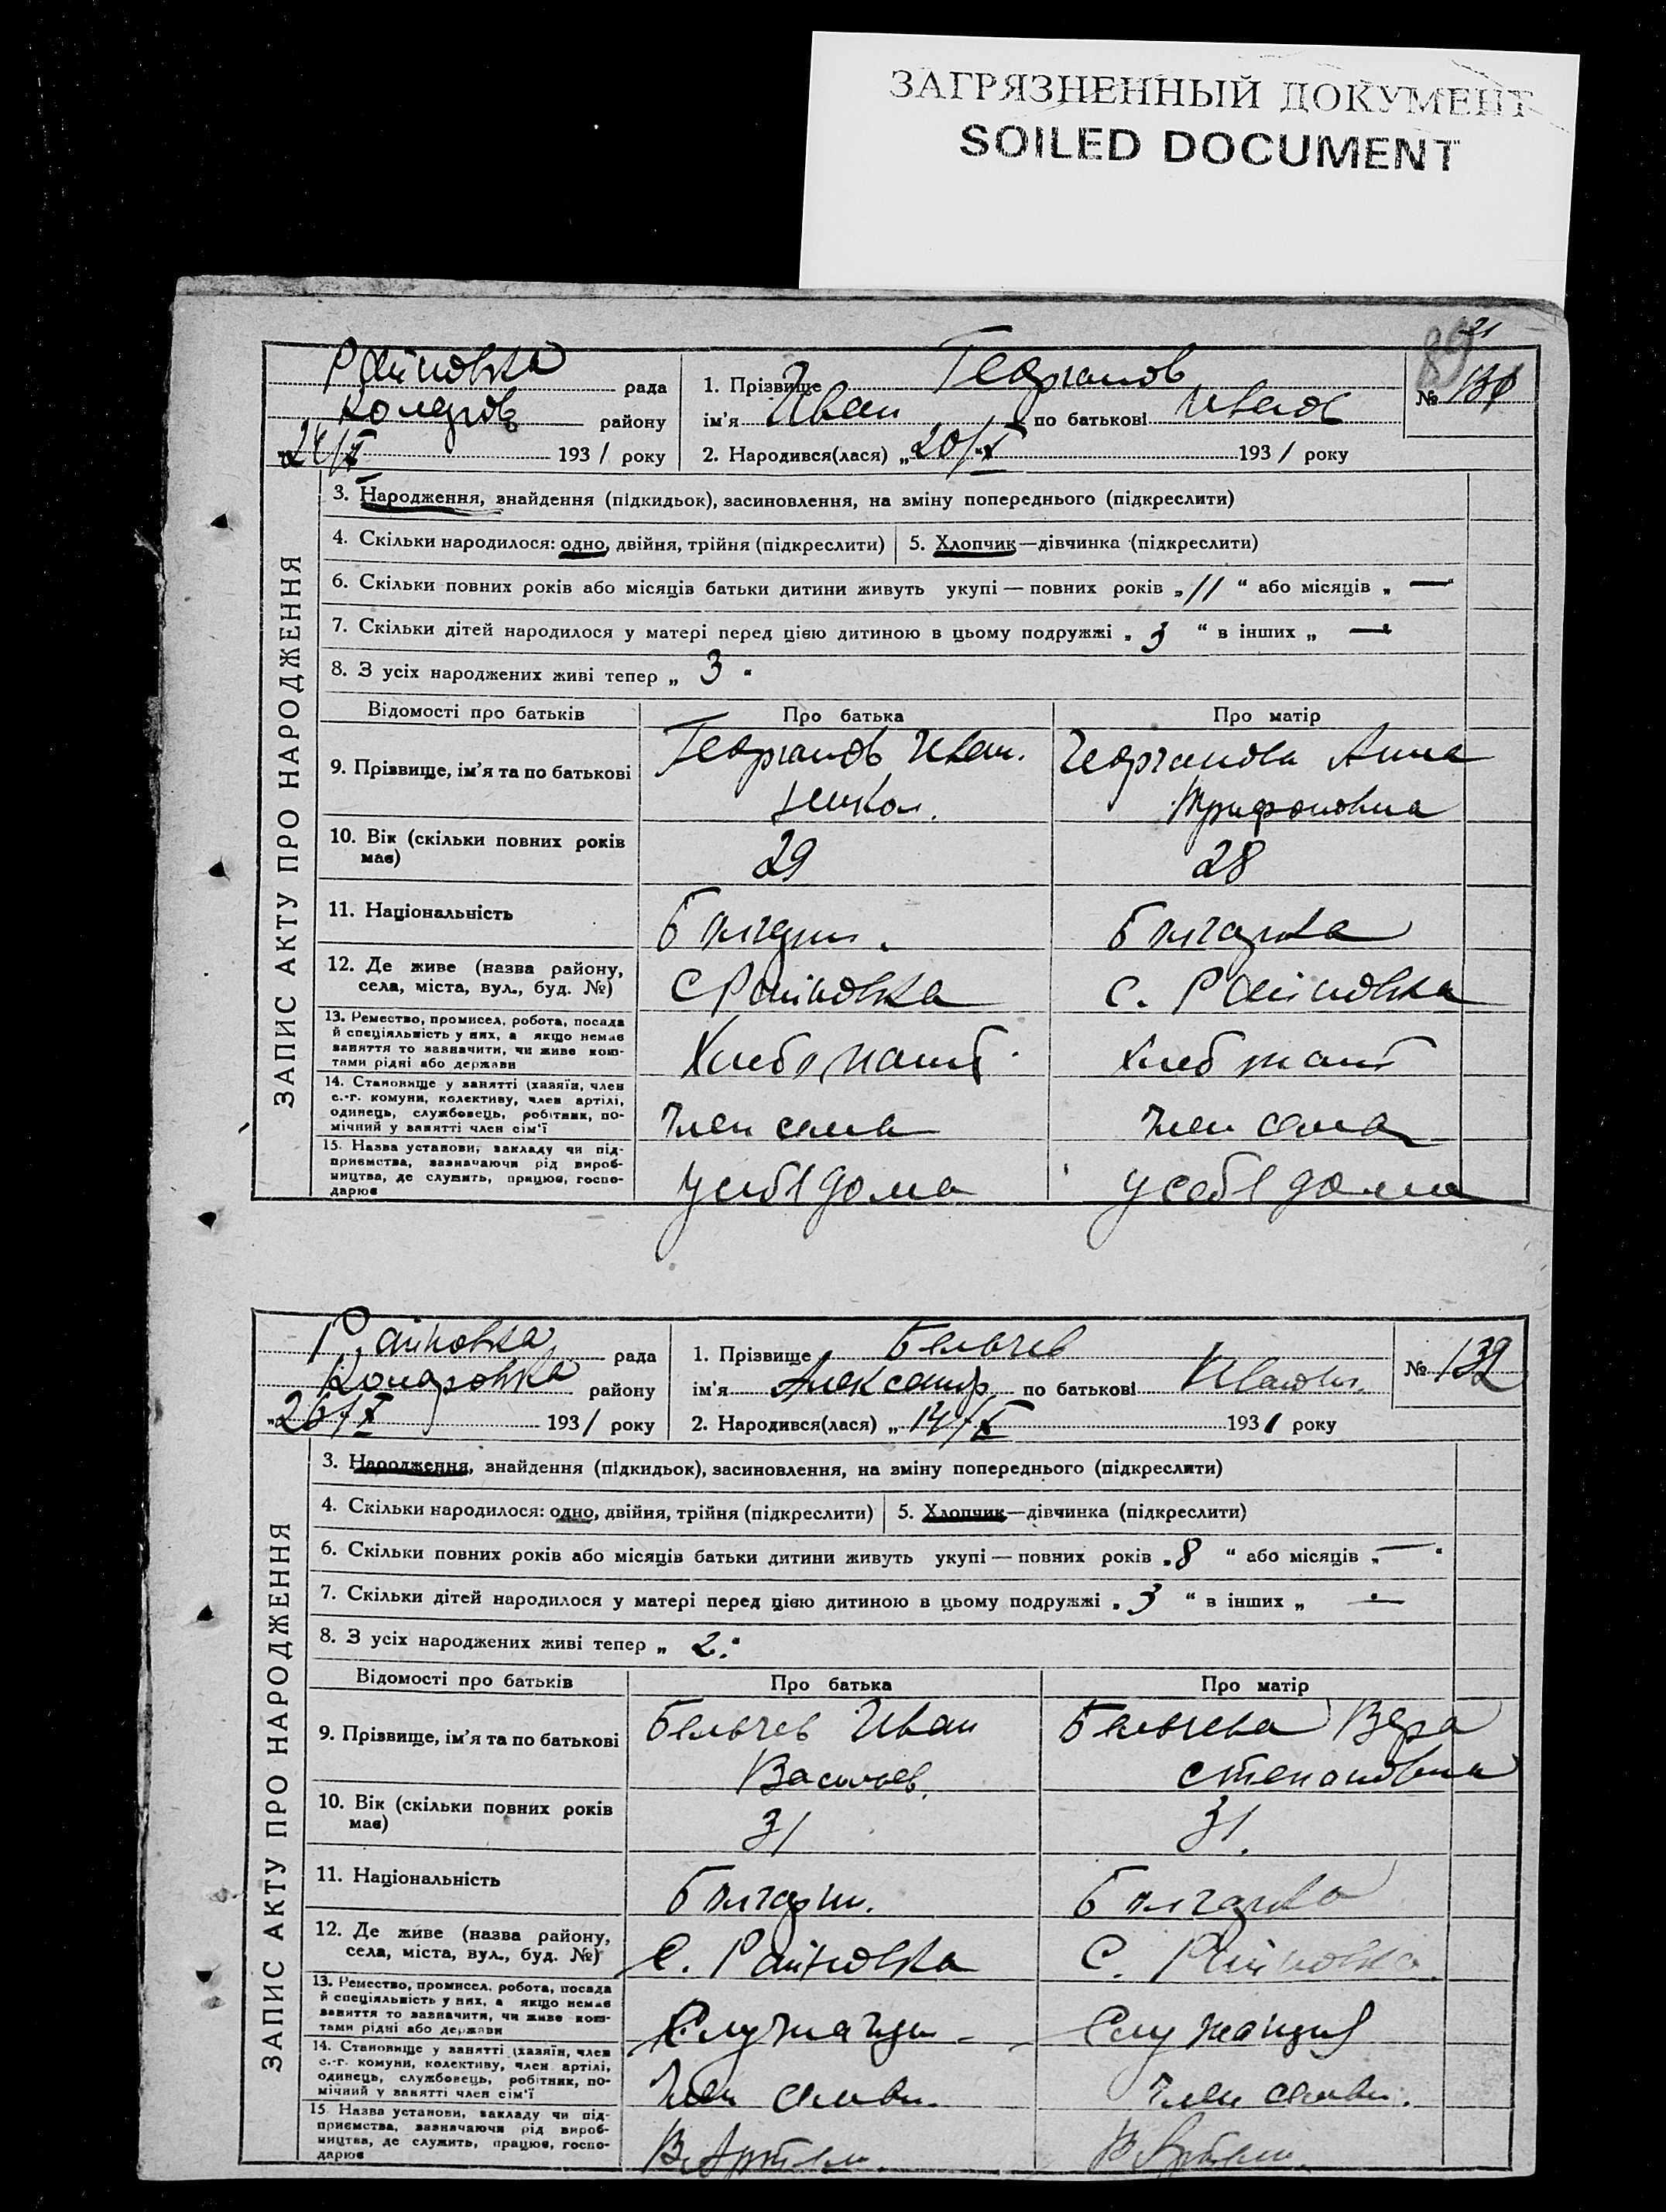 ЗАГРЯЗНЕННЫЙ ДОКУМЕНТ
SOILED DOCUMENT
89 21
Райновка рада
району
193 1 року
1. Прізвище Георганов
ім'я Иван по батькові Иванов
2. Народився(лася) „20/X 193 1 року
№
ЗАПИС АКТУ ПРО НАРОДЖЕННЯ
3. Народження, знайдення (підкидьок), засиновлення, на зміну попереднього (підкреслити)
4. Скільки народилося: одно, двійня, трійня (підкреслити) 5. Хлопчик—дівчинка (підкреслити)
6. Скільки повних років або місяців батьки дитини живуть укупі — повних років „11“ або місяців „—“
7. Скільки дітей народилося у матері перед цією дитиною в цьому подружжі „3“ в інших „—“
8. З усіх народжених живі тепер „3“
Відомості про батьків Про батька Про матір
9. Прізвище, ім'я та по батькові Георганов Иван. Георганова Анна
Трифоновна
10. Вік (скільки повних років 29 28
має)
11. Національність Болгарин. Болгарка
12. Де живе (назва району,
села, міста, вул., буд. №) С Райновка С. Райновка
13. Ремество, промисел, робота, посада
й спеціяльність у них, а якщо немає
заняття то зазначити, чи живе кош-
тами рідні або держави
14. Становище у занятті (хазяїн, член
с.-г. комуни, колективу, член артілі,
одинець, службовець, робітник, по-
мічний у занятті член сім'ї
15. Назва установи, закладу чи під-
приємства, зазначаючи рід вироб-
ництва, де служить, працює, госпо-
дарює
у себе дома у себе дома
Райновка рада
району
26/X 193 1 року
1. Прізвище Бельчев
ім'я Александр по батькові
2. Народився(лася) „14/X 193 1 року
№ 132
ЗАПИС АКТУ ПРО НАРОДЖЕННЯ
3. Народження, знайдення (підкидьок), засиновлення, на зміну попереднього (підкреслити)
4. Скільки народилося: одно, двійня, трійня (підкреслити) 5. Хлопчик—дівчинка (підкреслити)
6. Скільки повних років або місяців батьки дитини живуть укупі — повних років „8“ або місяців „—“
7. Скільки дітей народилося у матері перед цією дитиною в цьому подружжі „3“ в інших „—
8. З усіх народжених живі тепер „2.“
Відомості про батьків Про батька Про матір
9. Прізвище, ім'я та по батькові Бельчев Иван Бельчева Вера
Васильев. Степановна
10. Вік (скільки повних років 31 31.
має)
11. Національність Болгарин. Болгарка
12. Де живе (назва району,
села, міста, вул., буд. №) С. Райновка С. Райновка
13. Ремество, промисел, робота, посада
й спеціяльність у них, а якщо немає
заняття то зазначити, чи живе кош-
тами рідні або держави
Служащи
14. Становище у занятті (хазяїн, член
с.-г. комуни, колективу, член артілі,
одинець, службовець, робітник, по-
мічний у занятті член сім'ї
Член семьи. Член семьи.
15 Назва установи, закладу чи під-
приємства, зазначаючи рід вироб-
ництва, де служить, працює, госпо-
дарює
В Артели. В Артели.